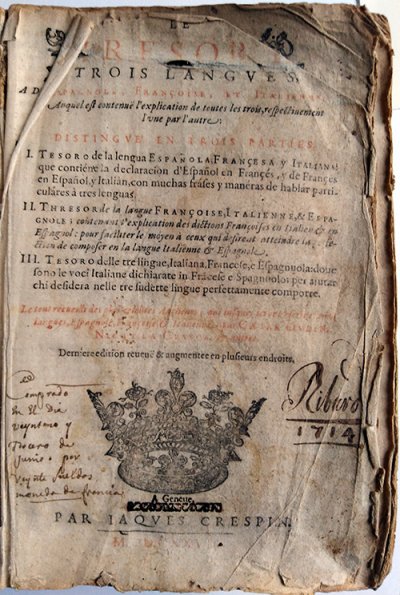 LE
TRESOR
TROIS LANGVES,
ESPAGNOLE, FRANÇOISE, ET ITALIENNE
Auquel est contenuë l'explication de toutes les trois, respectiuement
l'vne par l'autre:
DISTINGVE EN TROIS PARTIES.
I. TESORO de la lengua ESPAÑOLA, FRANÇESA y ITALIANA:
que contiéne la declaracion d'Español en Françés, y de Françés
en Español, y Italian, con muchas frases y manéras de hablar parti-
culáres à tres lenguas.
II. THRESOR de la langue FRANÇOISE, ITALIENNE, & ESPA-
GNOLE: contenant l'explication des dictions Françoises en Italien & en
Espagnol: pour faciliter le moyen à ceux qui desirent atteindre la perfe-
ction de composer en la langue Italiénne & Espagnole.
III. TESORO delle tre lingue, Italiana, Francese, e Spagnuola: doue
sono le voci Italiane dichiarate in Frācese e Spagnuolo: per aiutar
chi desidera nelle tre sudette lingue perfettamente comporre.
Le tout recueilli des plus celebres Autheurs
Langues, Espagnole, Françoise & Italienne, par CESAR OVDIN,
Derniere edition reueuë & augmentee en plusieurs endroits.
comprado
en el dia
veynteno y
tercero de
Junio, por
veynte sueldos
moneda de francia
Riburo
1714
A Geneue,
PAR IAQVES CRESPIN.